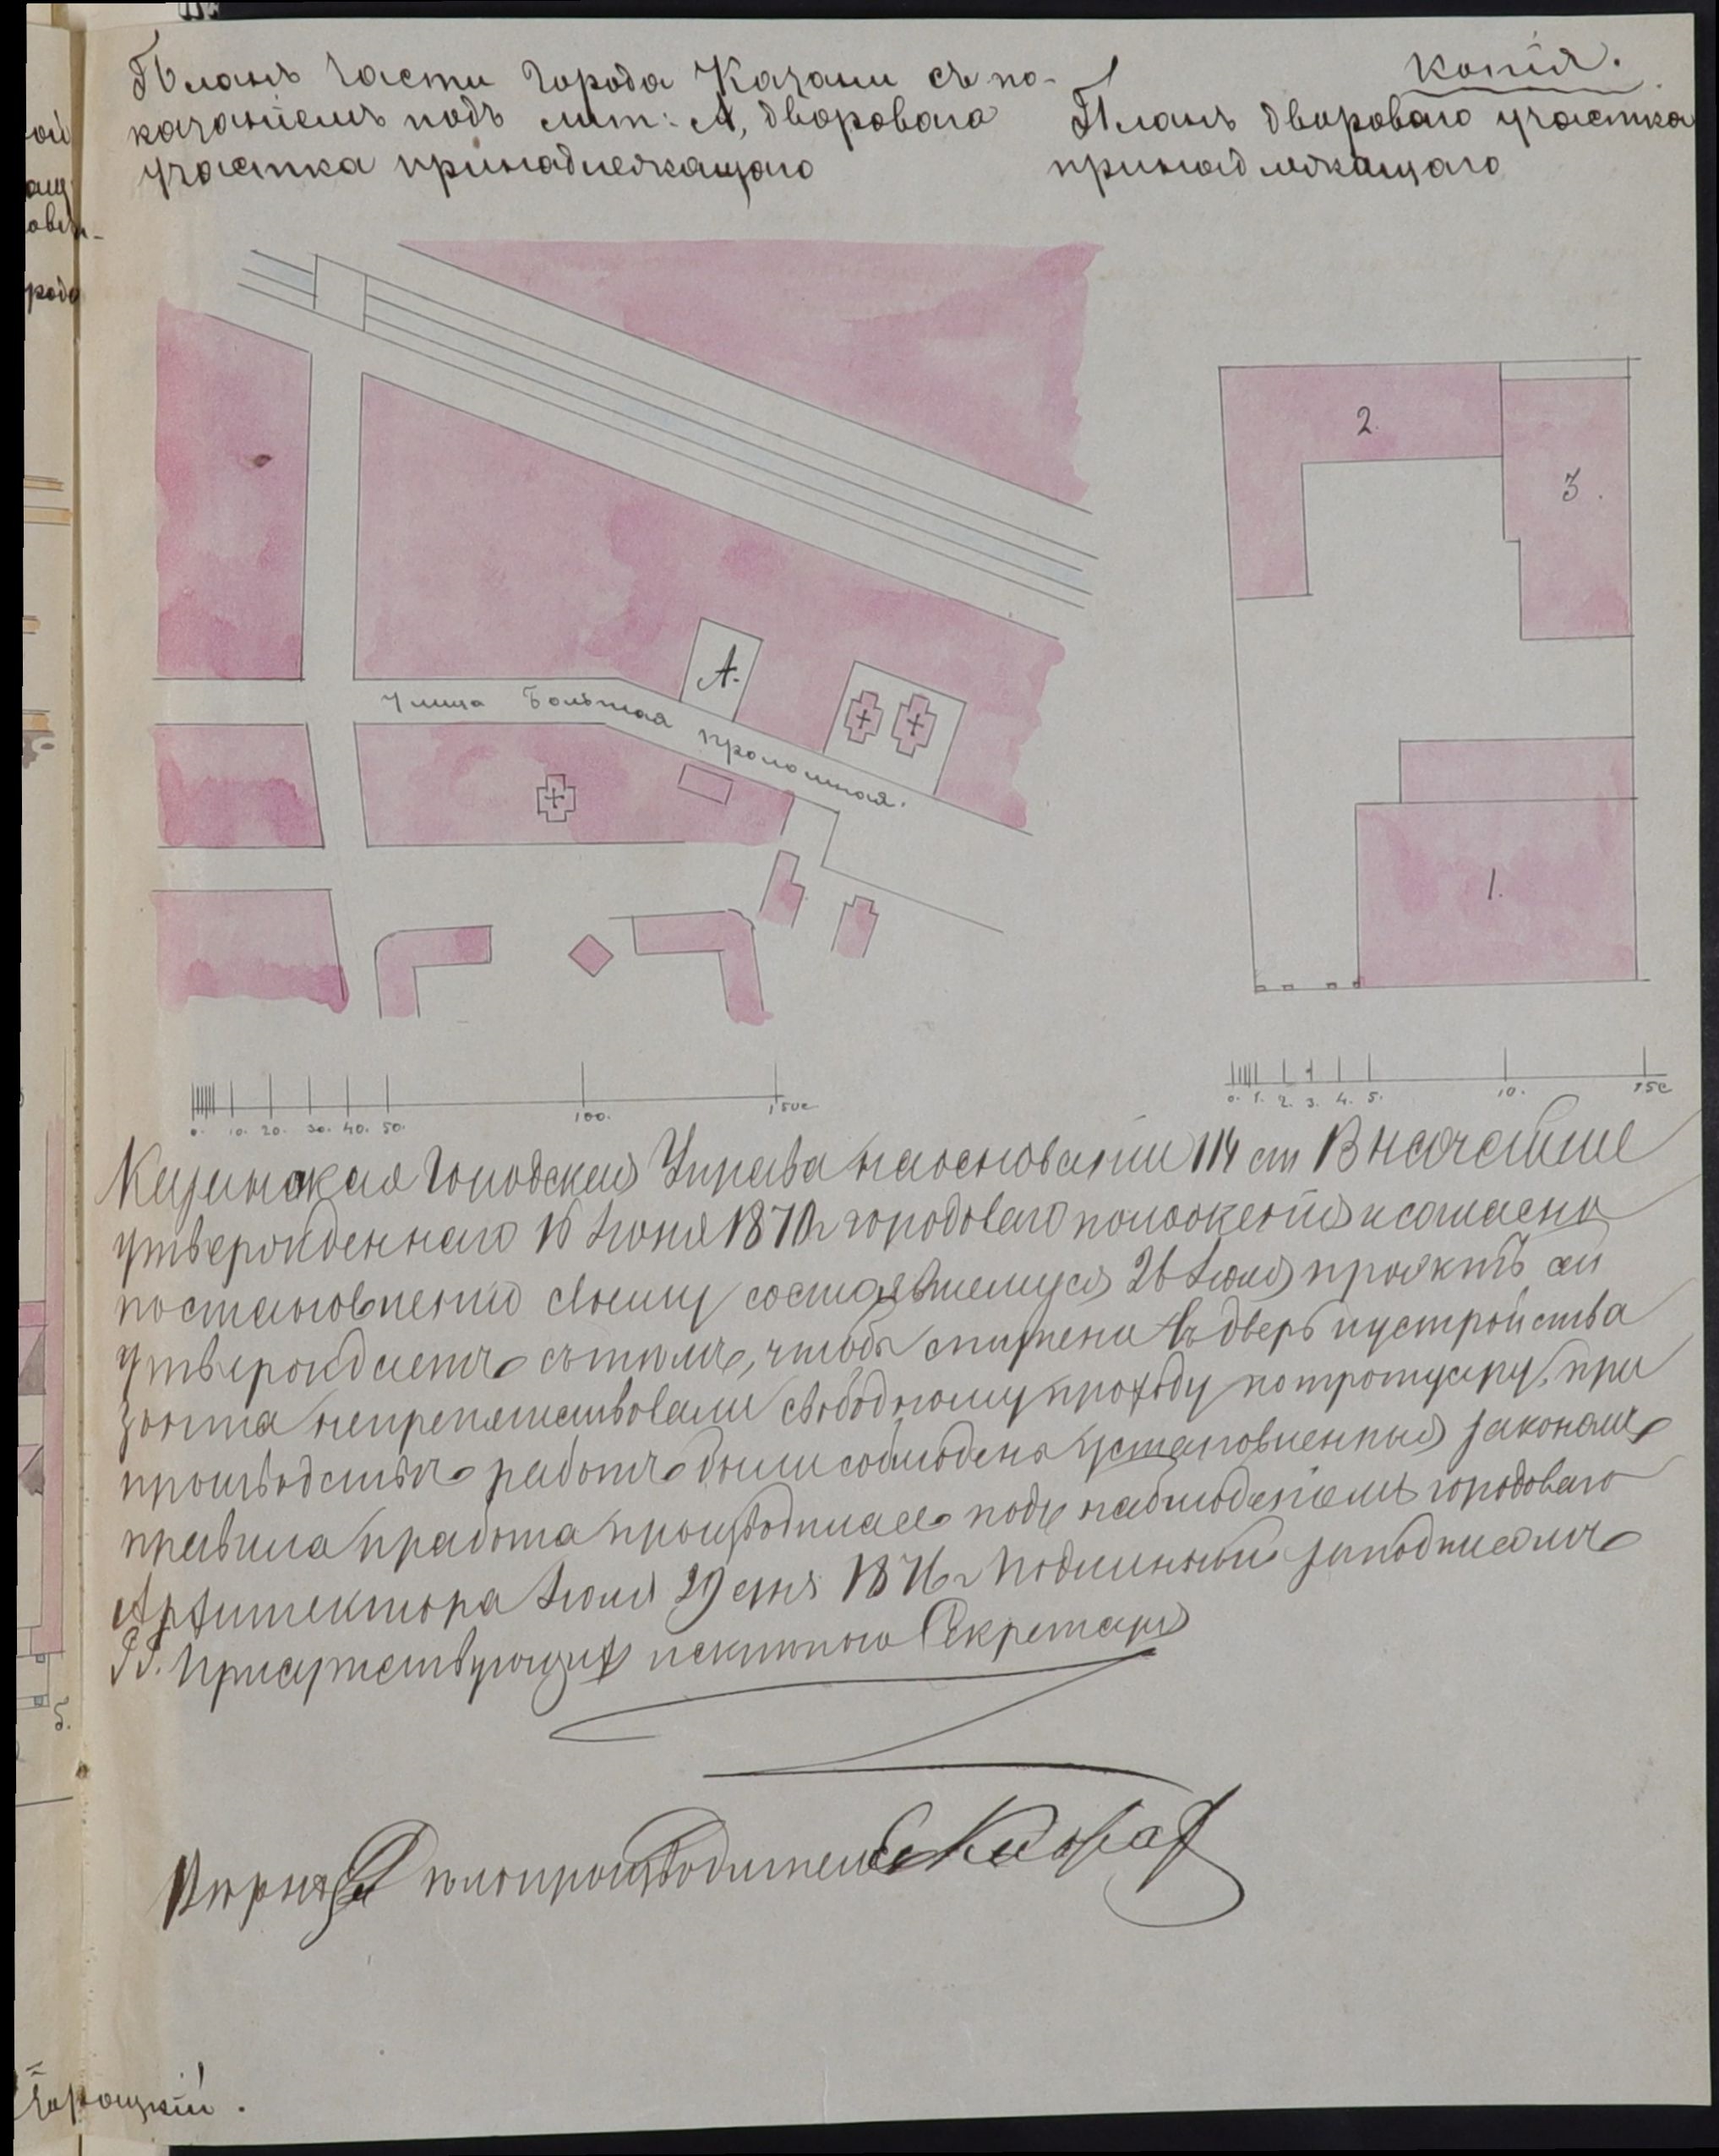 Копія.
Планъ части города Казани съ по-
казаніемъ подъ лит: А, двороваго
участка принадлежащаго
Планъ двороваго участка
принадлежащаго
2.
3.
А.
Улица Большая проломная.
1.
0. 10. 20. 30. 40. 50. 100. 150 с
0. 1. 2. 3. 4. 5. 10. 15 с
Казанская Городская Управа на основаніи 114 ст Высочайше
утвержденнаго 16 Іюня 1870 г городоваго положенія и согласно
постановленію своему состоявшемуся 26 Іюля проэктъ сей
утверждаетъ съ тѣмъ, чтобы ступени въ дверь и устройства
зонта непрепятствовали свободному проходу по тротуару, при
производствѣ работъ были соблюдены установленныя закономъ
правила и работа производилась подъ наблюденіемъ городоваго
Архитектора Іюля 29 дня 1876 г Подлинный за подписомъ
Г.г. Присутствующихъ и скрѣпою Секретаря
Вѣрно: Дѣлопроизводитель